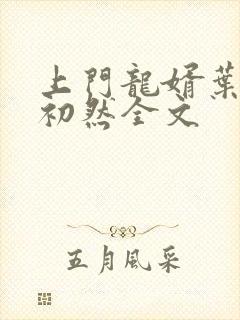 上門龍婿葉
初然全文
五月風采